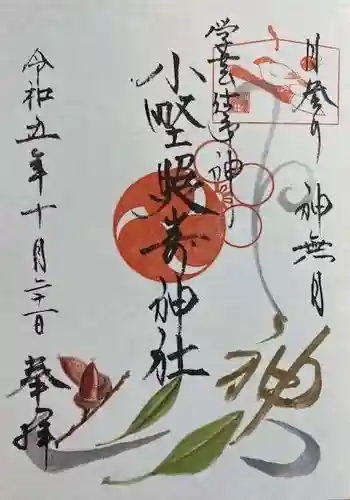 月詣り 神無月
学芸佐国神
小野照崎神社
神
令和五年十月二十二日
奉拝